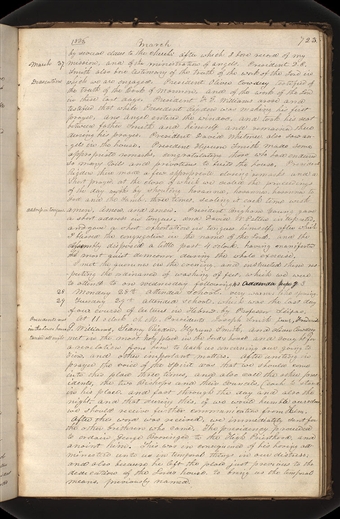 1836 March 723
by several elders to the church, after which I bore record of my
March 27 mission, and of the ministration of angels. President D. C.
Smith also bore testimony of the truth of the work of the Lord in
which we are engaged. President Oliver Cowdery testified of
the truth of the book of Mormon, and of the work of the Lord
in these last days. President F. G. Williams arose and
testified that while President Rigdon was making his first
prayer, an angel entered the window and took his seat
between father Smith and himself, and remained there
during his prayer. President David Whitmer also saw an-
gels in the house. President Hyrum Smith made some
appropriate remarks, congratulating those who had endured
so many toils and privations to build the house. President
Rigdon then made a few appropriate closing remarks and a
short prayer at the close of which we sealed the proceedings
of the day by shouting hosanna, hosanna, hosanna to
God and the Lamb three times, sealing it each time with
amen, amen, and amen. President Brigham Young gave
a short address in tongues, and David W. Patten interpreted,
and gave a short exhortation in tongues himself, after which
I blessed the congregation in the name of the Lord, and the
assembly dispersed a little past 4 o'clock, having manifested
the most quiet demeanor during the whole exercise.
I met the quorums in the evening and instructed them re-
specting the ordinance of washing of feet, which they were
to attend to on wednesday following;
28 Monday 28th Attended school. Very warm,
29 Tuesday 29th Attended school, which was the last day
of our course of lectures in Hebrew by Professor Seixas.
At 11 o'clock A. M. Presidents Joseph Smith Junr, Frederick
G. Williams, Sidney Rigdon, Hyrum Smith, and Oliver Cowdery
met in the most holy place in the Lord's house and sought for
a revelation from him to teach us concerning our going to
Zion and other important matters. After uniting in
prayer, the voice of the Spirit was that we should come
into this place three times, and also call the other pres-
idents, the two Bishops and their councils, each to stand
in his place, and fast through the day and also the
night, and that during this, if we would humble ourselves
we should receive further communications from him.
After this word was received, we immediately sent for
the other brethren who came. The presidency proceeded
to ordain George Boosinger to the High Priesthood, and
anoint him. This was in consequence of his having ad-
ministered unto us in temporal things in our distress,
and also because he left the place just previous to the
dedication of the Lord's house to bring us the temporal
means previously named.